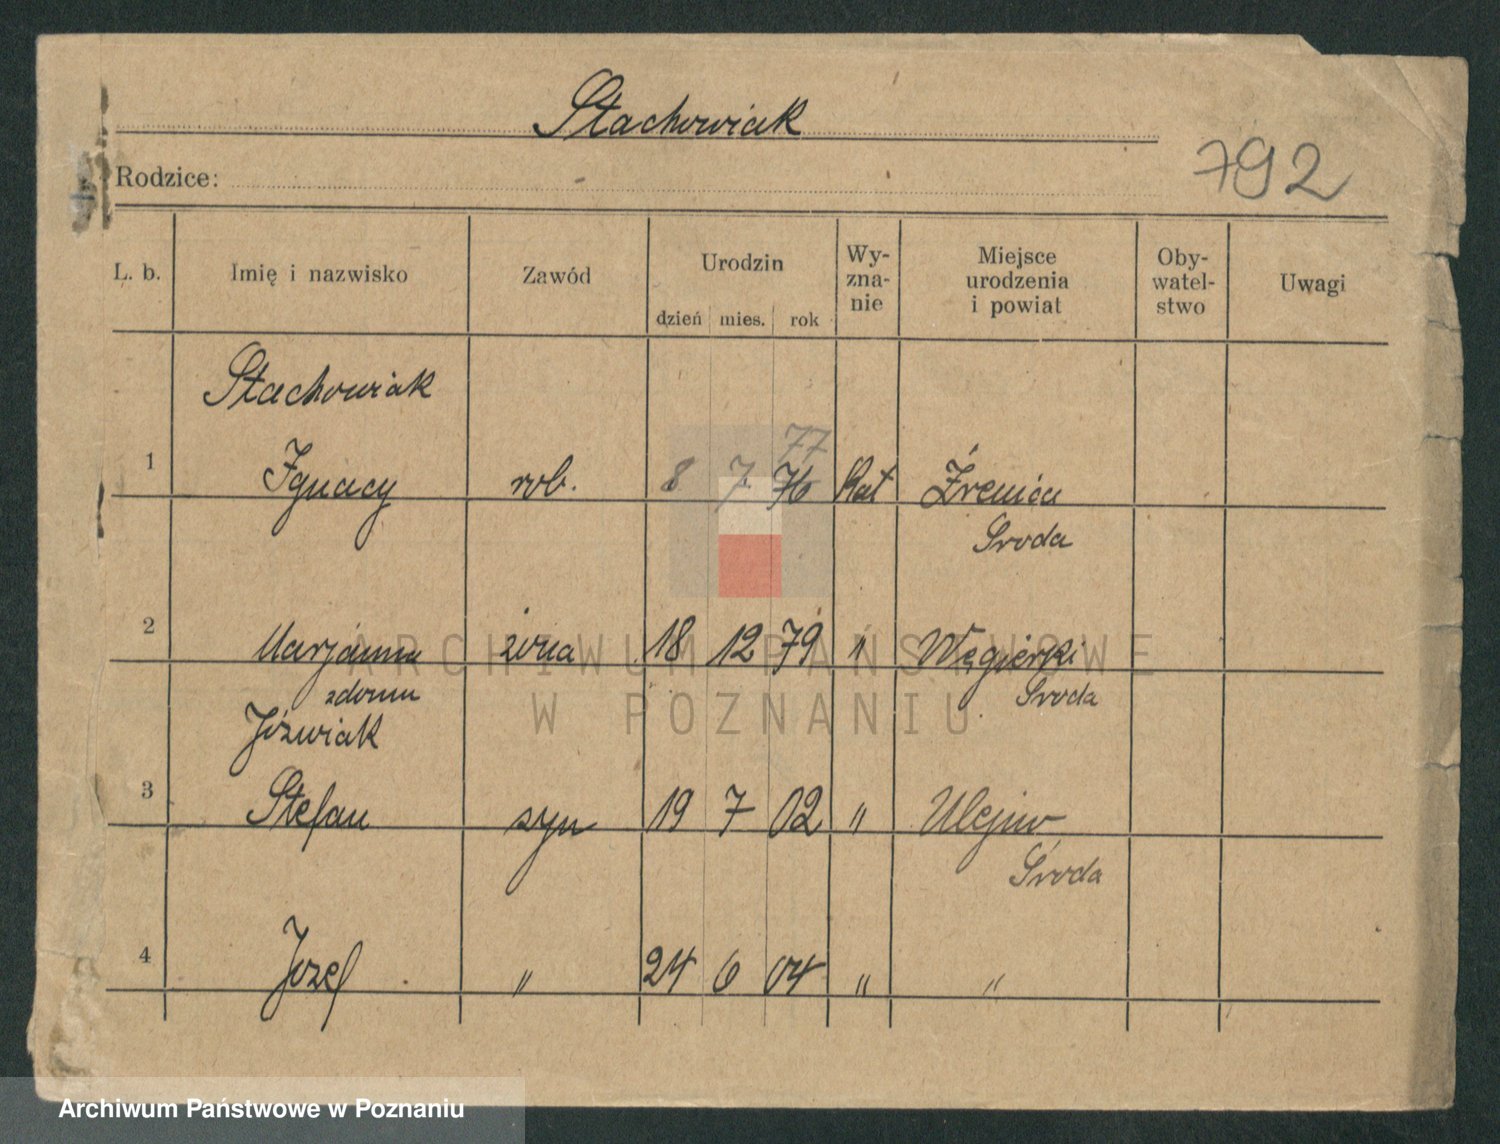 Stachowiak
792
Rodzice: -
L. b. Imię i nazwisko Zawód Urodzin dzień mies. rok Wy-zna-nie Miejsce urodzenia i powiat Oby-watel-stwo Uwagi
Stachowiak
77
1 Ignacy rob. 8 7 76 Kat Źrenica
Środa
2 Marjanna żona 18 12 79 " Węgierki
zdomu Środa
Jóźwiak
3 Stefan syn 19 7 02 " Ulejno
Środa
4 Józef " 24 6 04 " "
ARCHIWUM PAŃSTWOWE
W POZNANIU
Archiwum Państwowe w Poznaniu